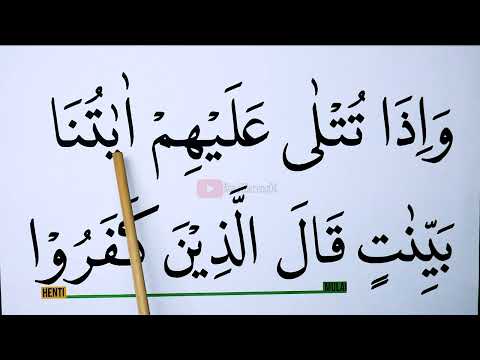 وَاِذَا تُتْلٰى عَلَيْهِمْ اٰيٰتُنَا
بَيِّنٰتٍ قَالَ الَّذِيْنَ كَفَرُوْا
HENTI MULAI